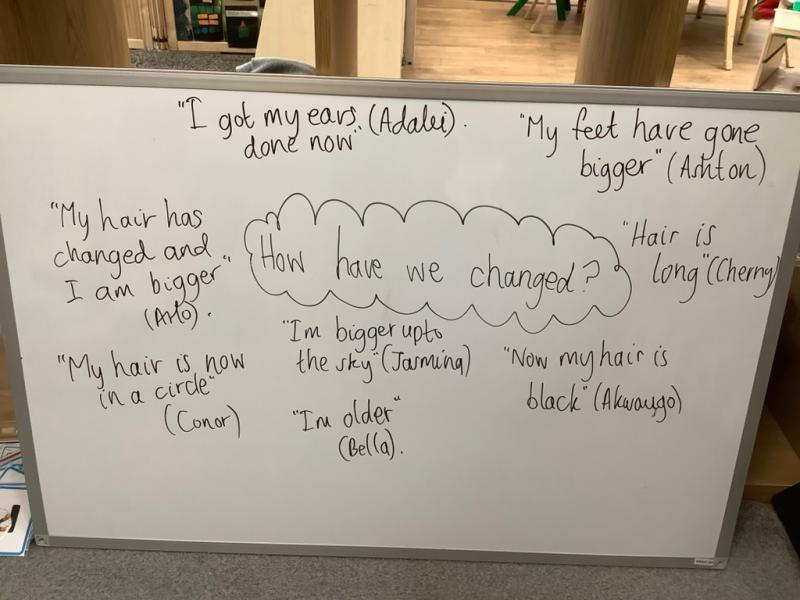 "I got my ears (Adalei).
done now"
"My feet have gone
bigger" (Ashton)
"My hair has
changed and
I am bigger"
(Arlo).
How have we changed?
"Hair is
long" (Cherny)
"Im bigger upto
the sky" (Jasmina)
"My hair is now
in a circle"
(Conor)
"Now my hair is
black" (Akwaugo)
"Im older"
(Bella).